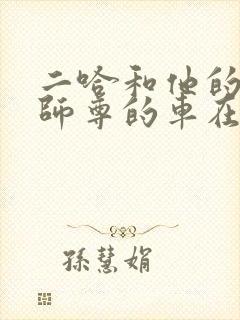 二哈和他的
師尊的車在
孫慧娟